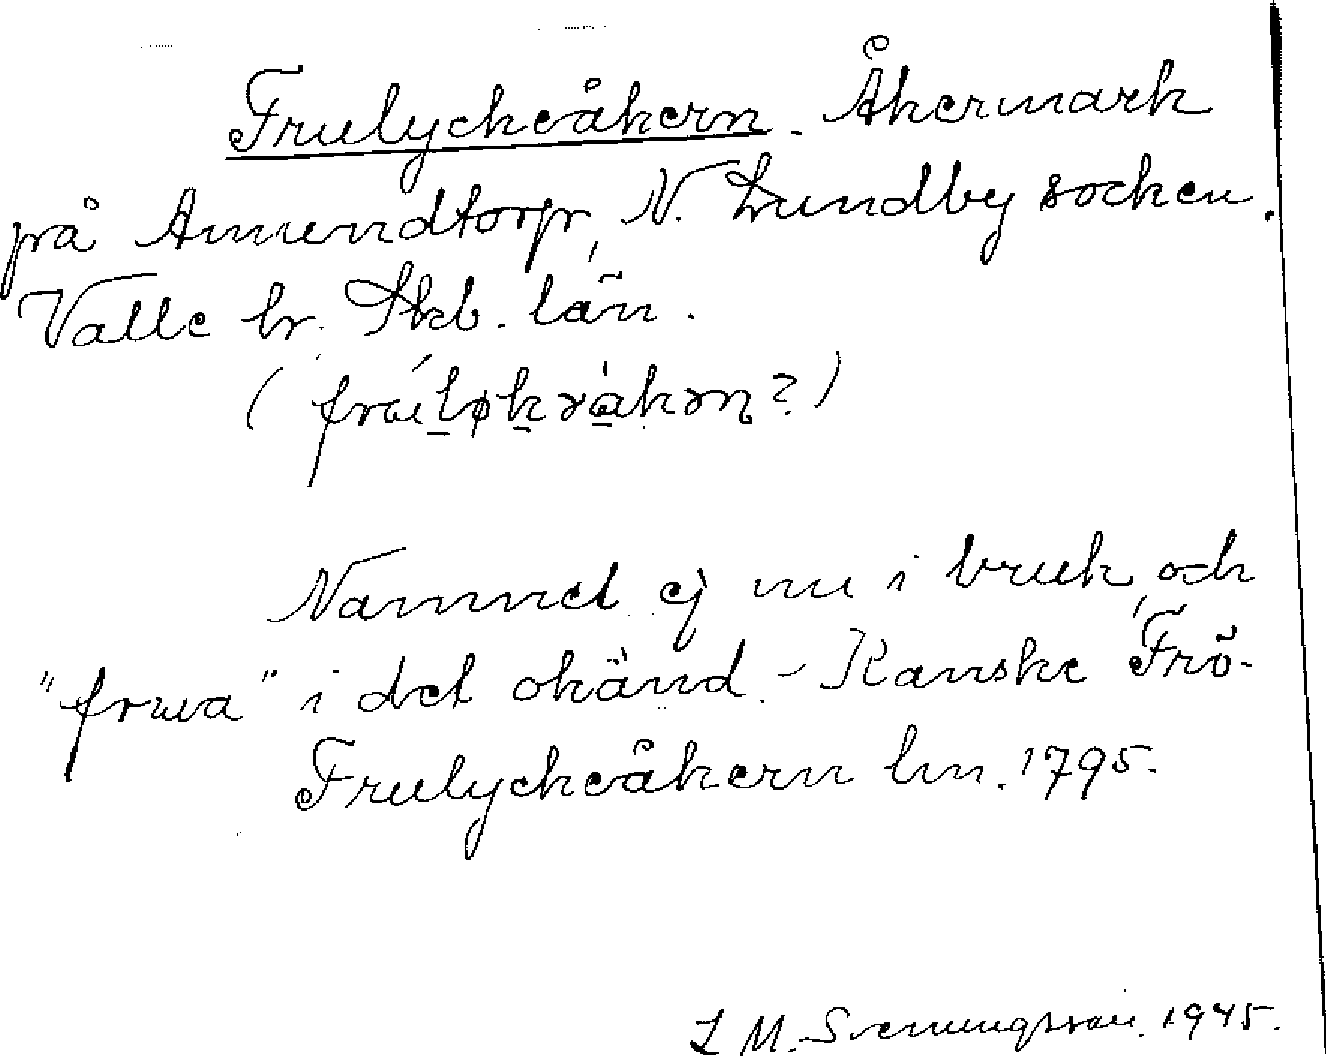 Frulyckeåkern. Åkermark
på Amundtorp, N. Lundby socken.
Valle hr. Skb. län.
Namnet ej nu i bruk, och
"frua" i det okänd. - Kanske Frö-
Frulyckeåkern lm. 1795.
L M. Svenungsson. 1945.